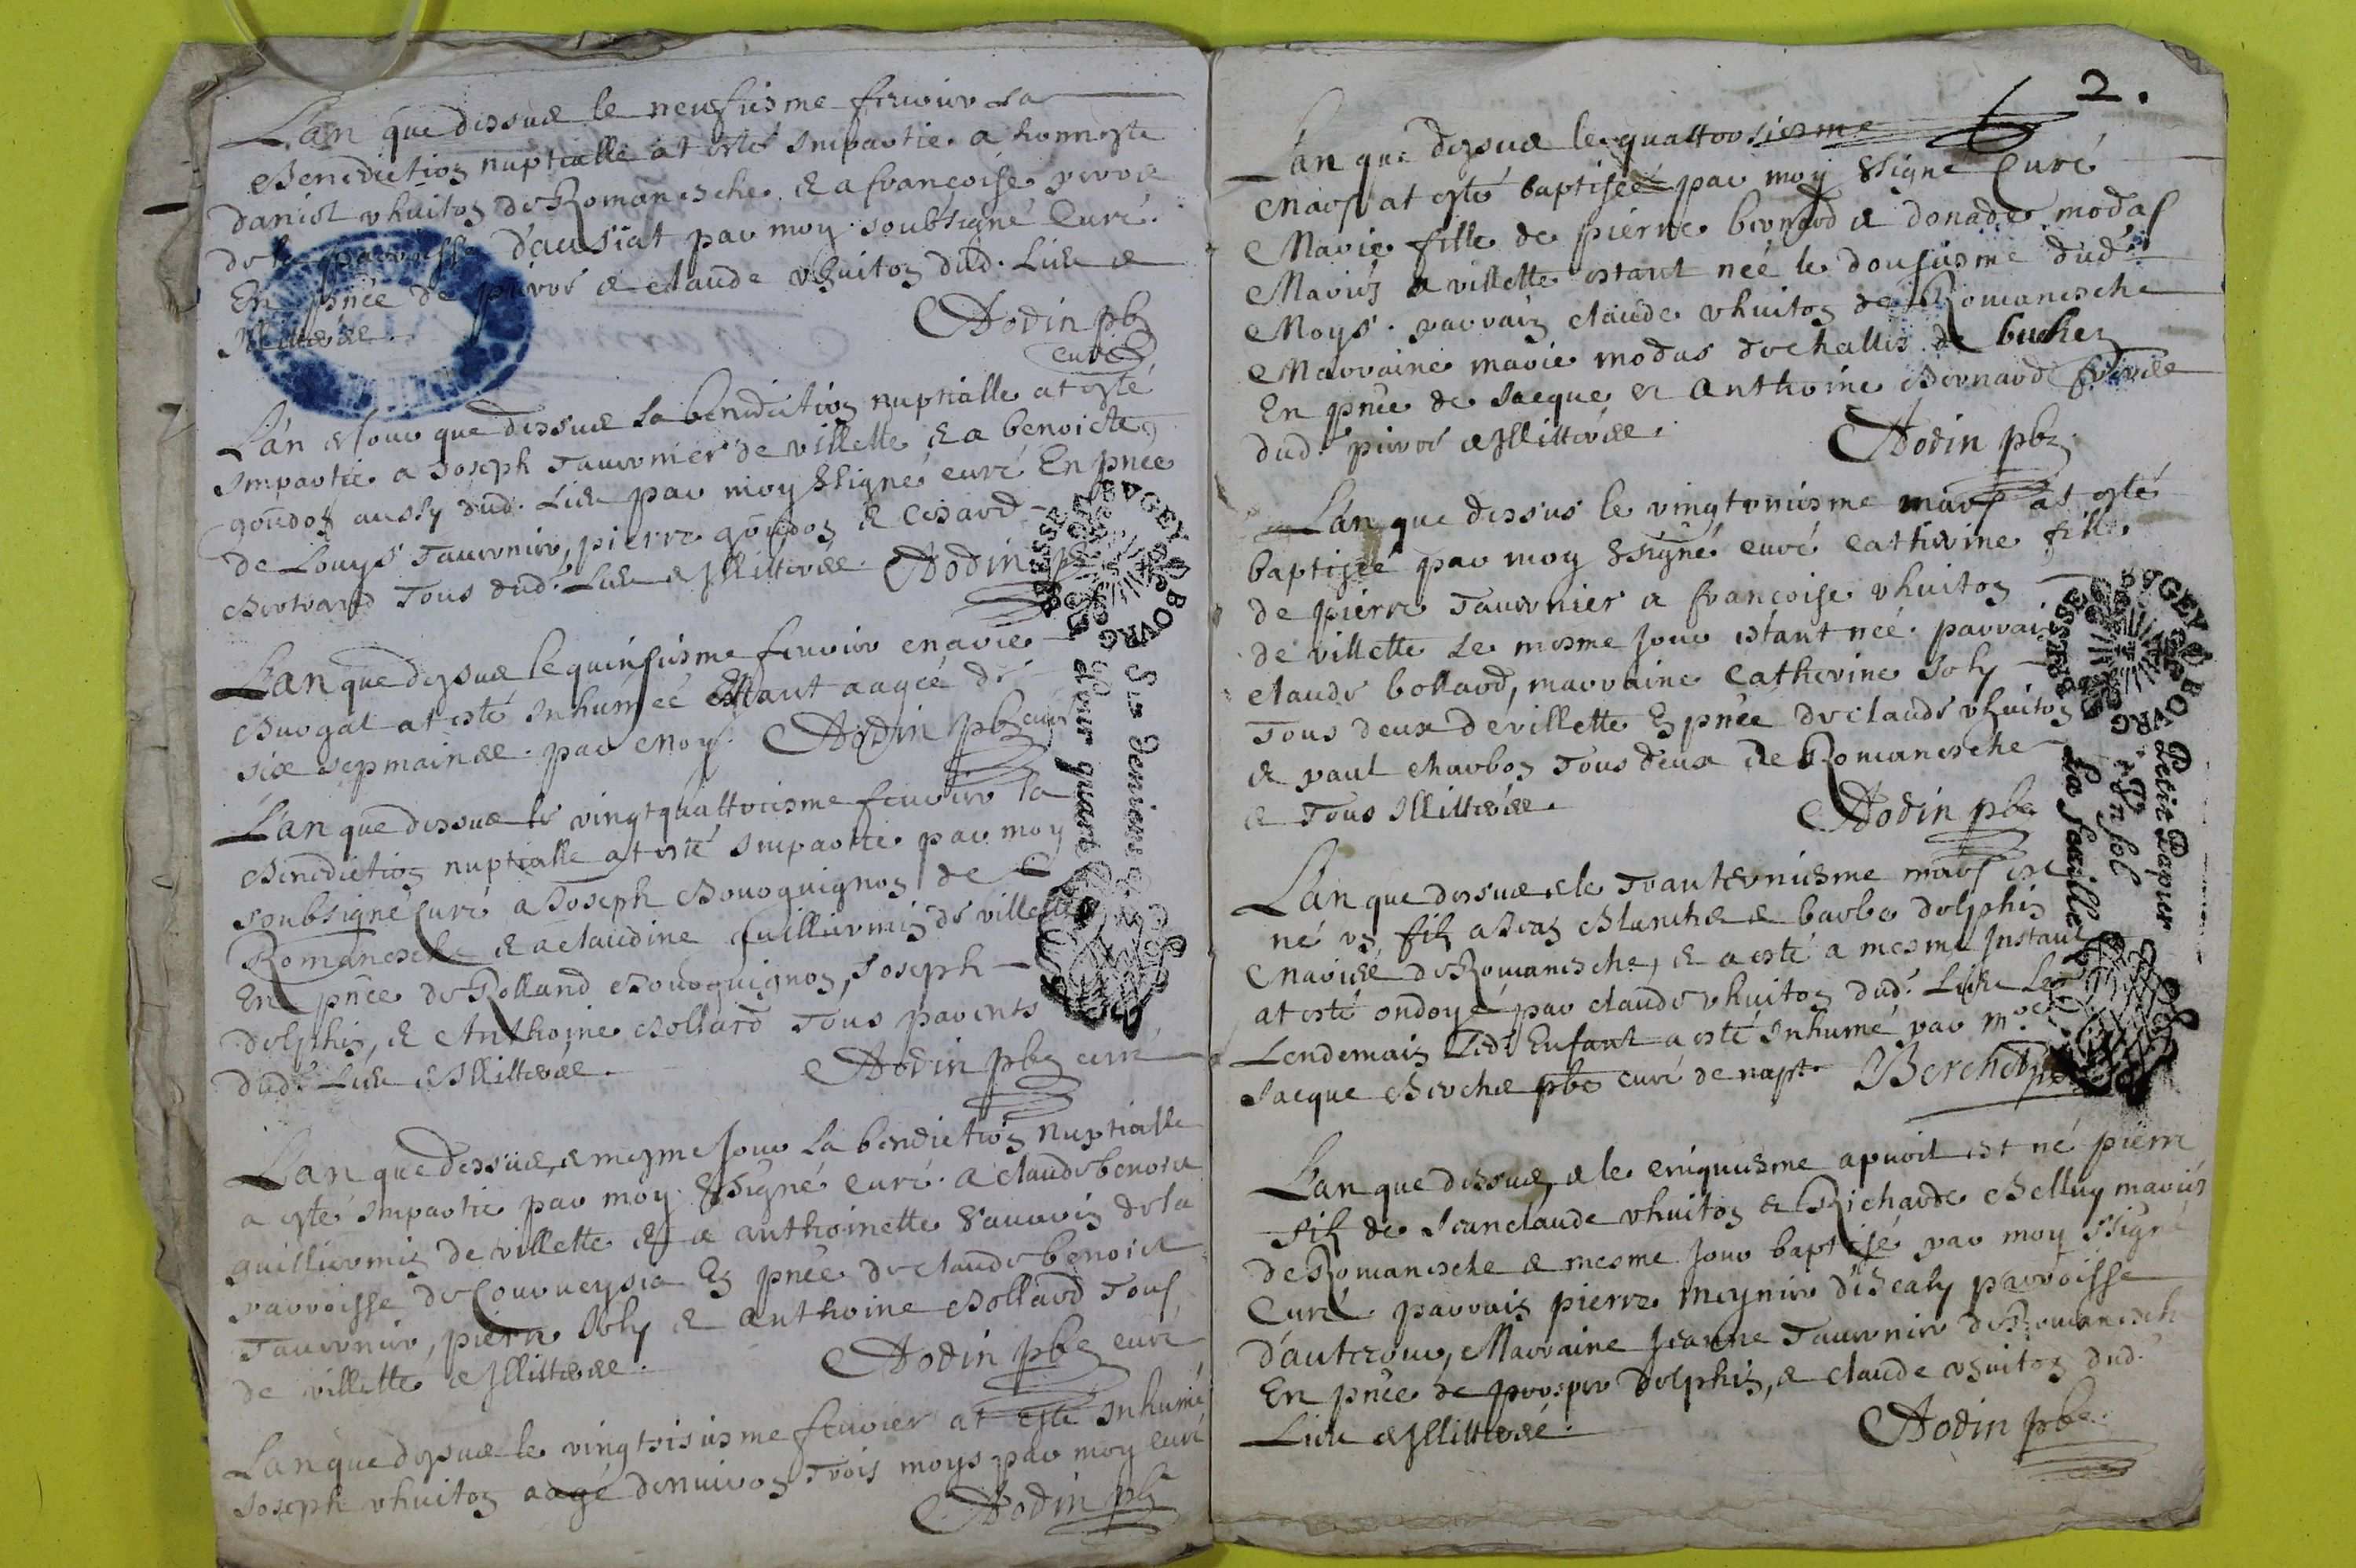 L'an que dessus le neufiesme feuvier la
Benediction nuptialle at esté Impartie a honneste
daniel vhuiton de Romanesche & a françoise perroz
de la parroisse d'ausiat par moy soubsigné Curé.
En pnce de pierre & claude vhuiton dud. Lieu &
Illitterés.
Dodin pbr
curé
L'an & Jour que dessus la benediction nuptialle at esté
Impartie a Joseph Tauernier de villette & a benoicte
goudon aussy dud. Lieu par moy ssigné curé En pnce
de Louys Tauernier, pierre goudon & Cesard
Bertrand Tous dud. Lieu & Illitterés. Dodin pb
L'an que dessus le quinsiesme feuvier
Buogat at esté Inhumeé Estant aageé de
six sepmaines par Moy. Dodin pbr curé
L'an que dessus le vingtquattriesme feuvier la
Benediction nuptialle at esté Impartie par moy
soubsigné Curé a Joseph Bourguignon de
Romanesche & a claudine Guilliermin de villette
En pnce de Rolland Bourguignon, Joseph
dolphin, & Anthoine Bollard Tous parents
dud. Lieu & Illitterés.
Dodin pbr curé
L'an que dessus, & mesme Jour La benediction Nuptialle
a esté Impartie par moy ssigné curé a claude benoict
guilliermin de villette & a anthoinette Sauarin de la
parroisse de Courueysia En pnce de claude benoict
Tauernier, pierre Joly & Anthoine Bollard Tous
de villette & Illitterés.
Dodin pbr curé
L'an que dessus le vingtsisiesme feuvier at esté Inhumé
Joseph vhuiton aagé denuiron Trois moys par moy curé
Dodin pbr
SIX deniers
BRESSE BVGEY BOVRG
2.
L'an que dessus le quattorsiesme
Mars at esté baptiseé par moy ssigné Curé
Marie fille de pierre bernard & donade modas
Mariés a villette estant neé le dousiesme dud.
Moys. parrain claude vhuiton de Romanesche
Marraine marie modas de challes de
En pnce de Jacque & Anthoine Bernard freres
dud. pierre & Illitterés.
Dodin pbr
L'an que dessus le vingtuniesme mars at esté
baptiseé par moy ssigné curé Catherine fille
de pierre Tauernier & françoise vhuiton
de villette Le mesme Jour estant neé. parrain
claude bollard, marraine Catherine Joly
Tous deux de villette En pnce de claude vhuiton
& paul charbon Tous deux de Romanesche
& Tous Illitterés.
Dodin pbr
L'an que dessus & le Tranteuniesme mars est
né un filz a Jean Blanche & barbe dolphin
Mariés de Romanesche, & a esté a mesme Instant
at esté ondoyé par claude vhuiton dud. Lieu Le
Lendemain Led. Enfant a esté Inhumé par mre
Jacque Berchet pbr curé de napt. JBerchet pbr
L'an que dessus, & le cinquiesme apvril est né pierre
filz de Jeanclaude vhuiton & Richarde Belluy mariés
de Romanesche & mesme Jour baptisé par moy ssigné
Curé parrain pierre meynier parroisse
, Marraine Jeanne Tauernier de Romanesche
En pnce de prosper Dolphin, & claude vhuiton dud.
Lieu & Illitteré.
Dodin pbr
BRESSE BVGEY BOVRG
Petit Papier
1 Ving sol
La feuille